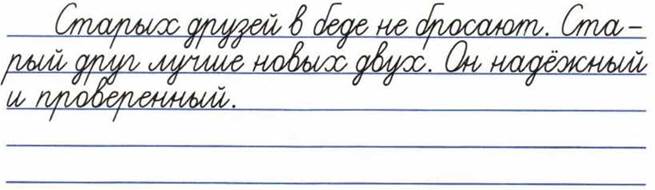 Старых друзей в беде не бросают. Ста-
рый друг лучше новых двух. Он надёжный
и проверенный.